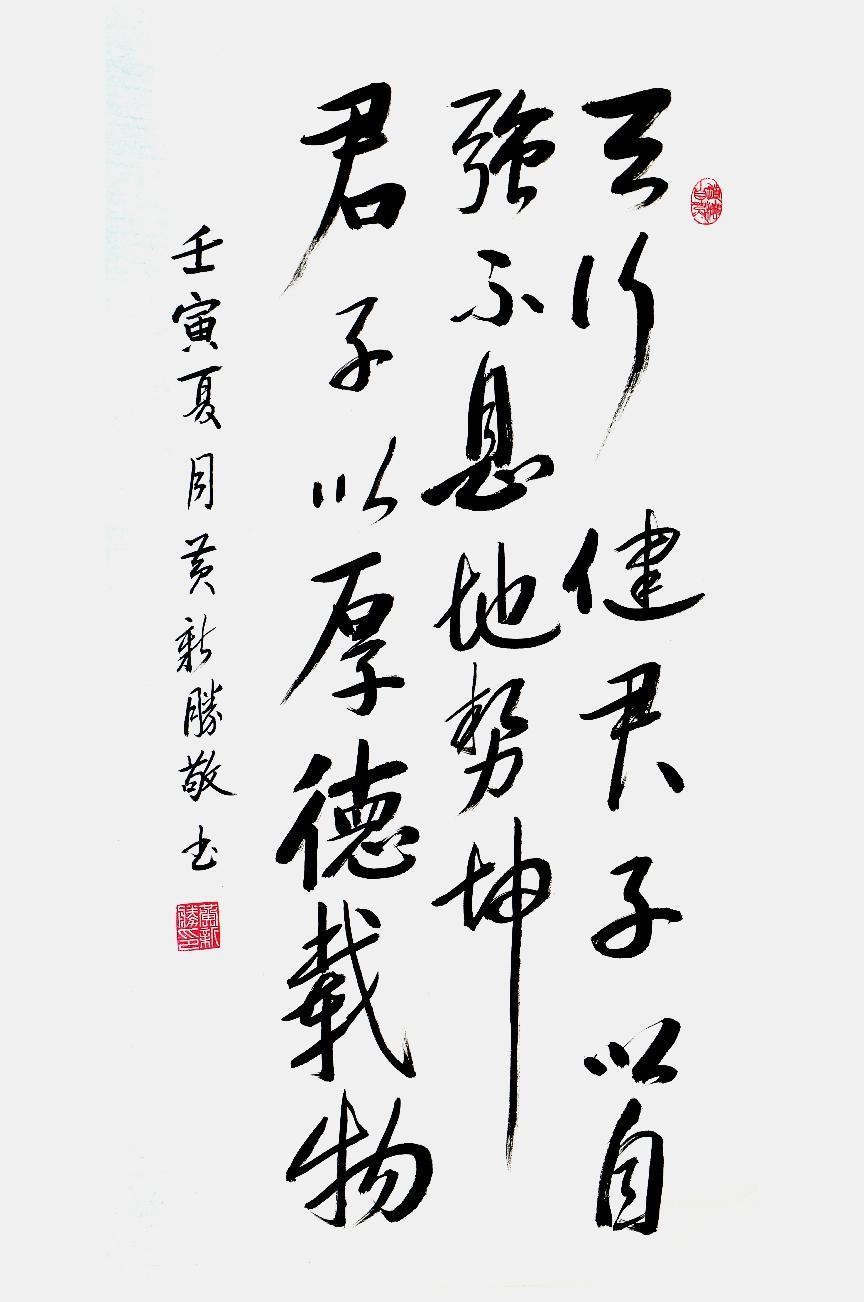 天行健君子以自
強不息地势坤
君子以厚德載物
壬寅夏月黄新勝敬书
黄新勝印